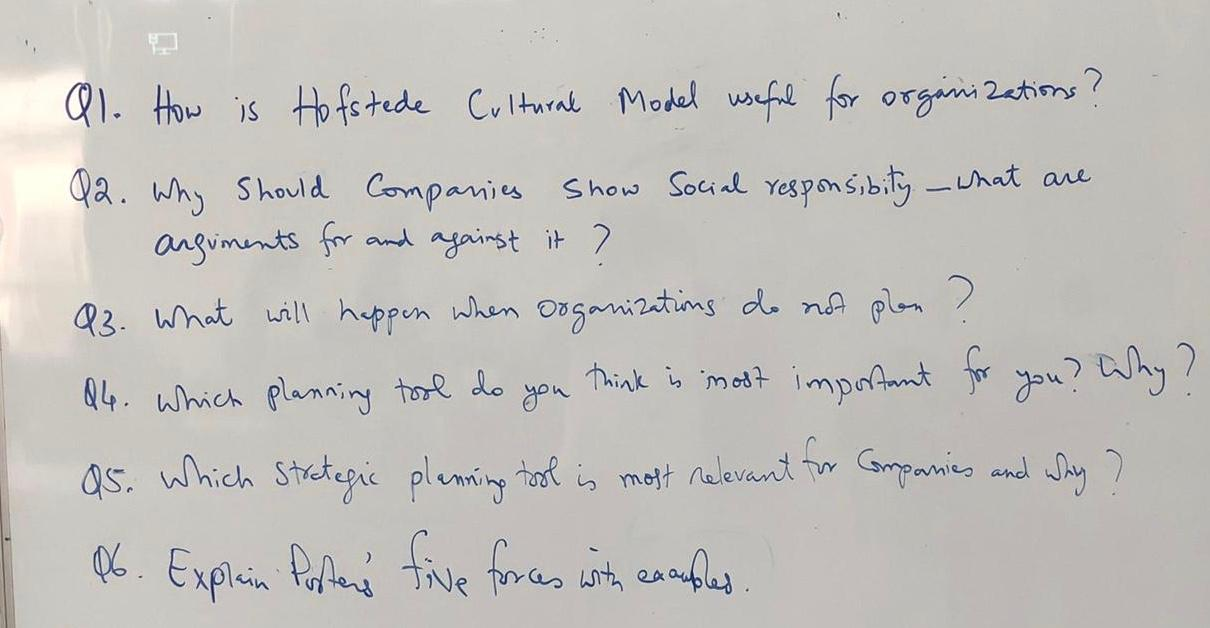 Q1. How is Hofstede Cultural Model useful for organizations?
Q2. Why Should Companies Show Social responsibity – what are
arguments for and against it ?
Q3. What will happen when organizations do not plan ?
Q4. Which planning tool do you think is most important for you? Why?
Q5. Which Strategic planning tool is most relevant for Companies and why ?
Q6. Explain Porters' five forces with examples.